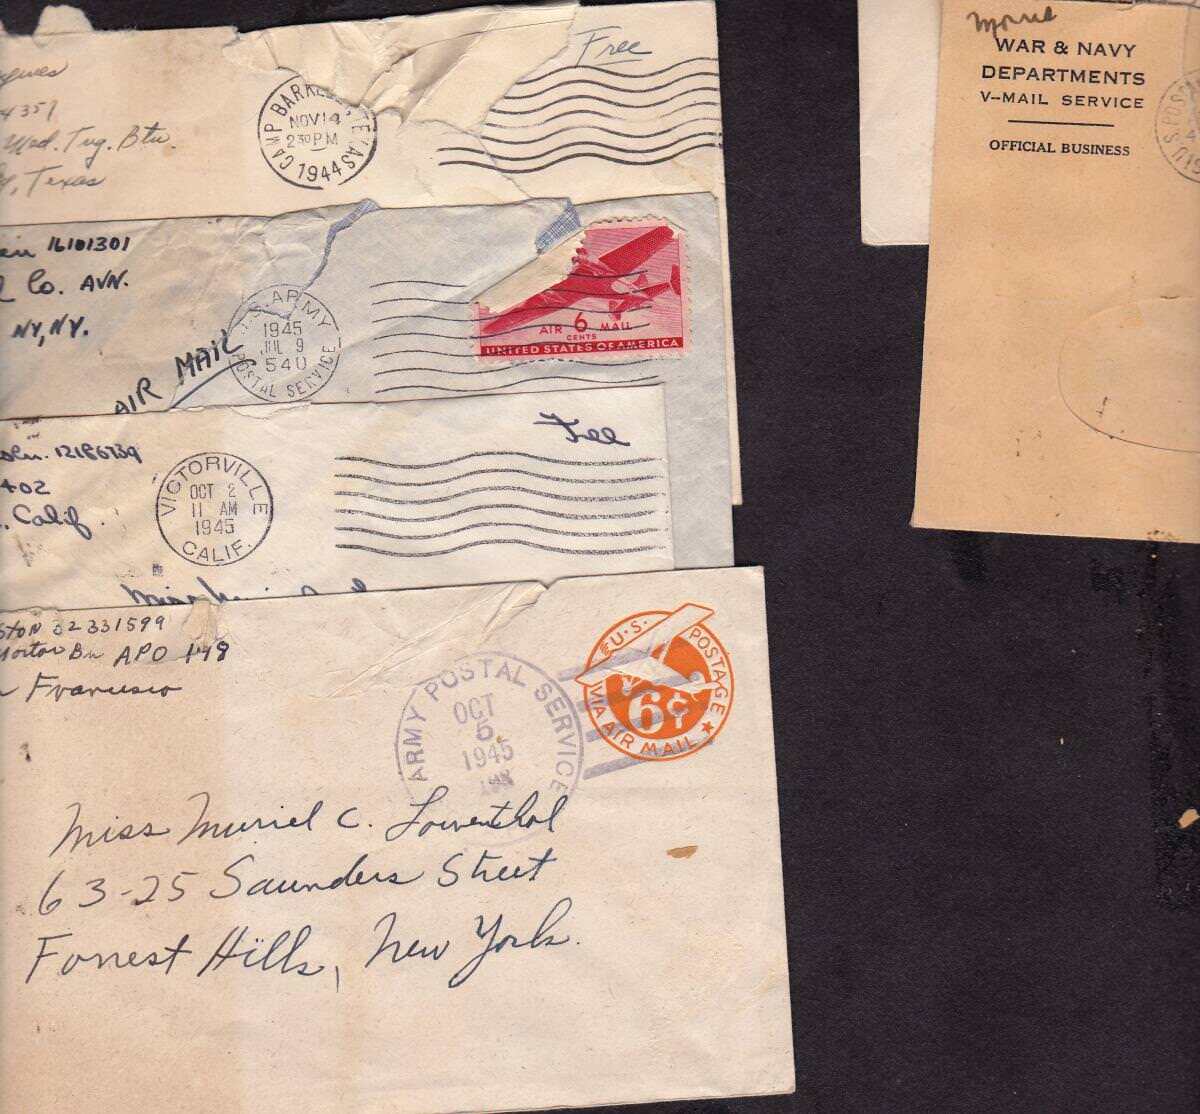 Free
4357
Med. Tng. Btn.
Texas
CAMP BARKELEY, TEXAS
NOV 14
2 30 PM
1944
16101301
Co. AVN.
NY, NY.
AIR MAIL
U.S. ARMY
1945
JUL 9
540
POSTAL SERVICE
AIR 6 MAIL
CENTS
UNITED STATES OF AMERICA
Free
12186739
402
Calif.
VICTORVILLE
OCT 2
11 AM
1945
CALIF.
Miss
32331599
Mortar Bn APO 148
Francisco
ARMY POSTAL SERVICE
OCT
5
1945
U.S. POSTAGE
6¢
VIA AIR MAIL
Miss Muriel C. Lowenthal
63-25 Saunders Street
Forrest Hills, New York.
WAR & NAVY
DEPARTMENTS
V-MAIL SERVICE
OFFICIAL BUSINESS
U.S. POS